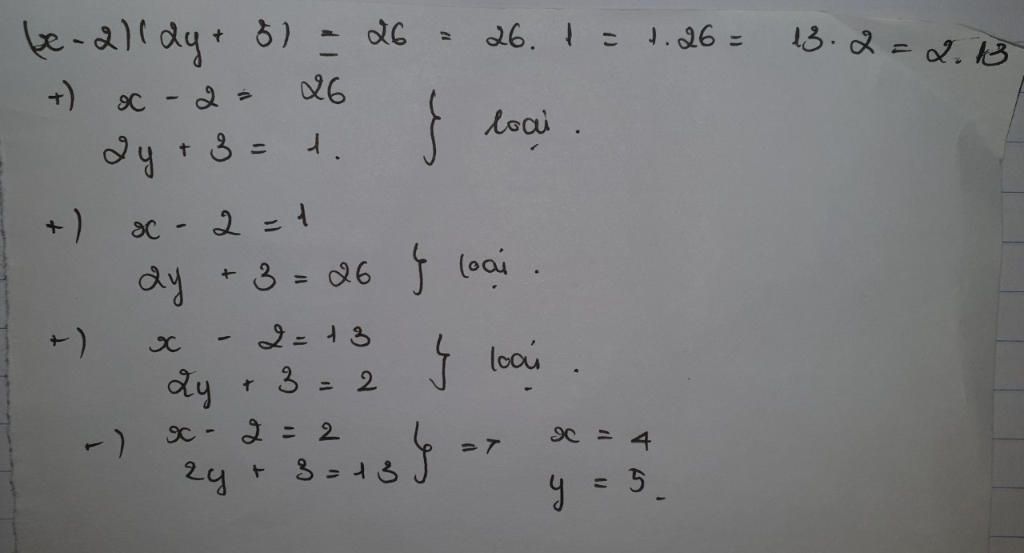 (x - 2)(2y + 3) = 26 = 26. 1 = 1.26 = 13.2 = 2.13
+) x - 2 = 26
2y + 3 = 1. } loại.
+) x - 2 = 1
2y + 3 = 26 } loại.
+) x - 2 = 13
2y + 3 = 2 } loại.
+) x - 2 = 2
2y + 3 = 13 } => x = 4
y = 5.